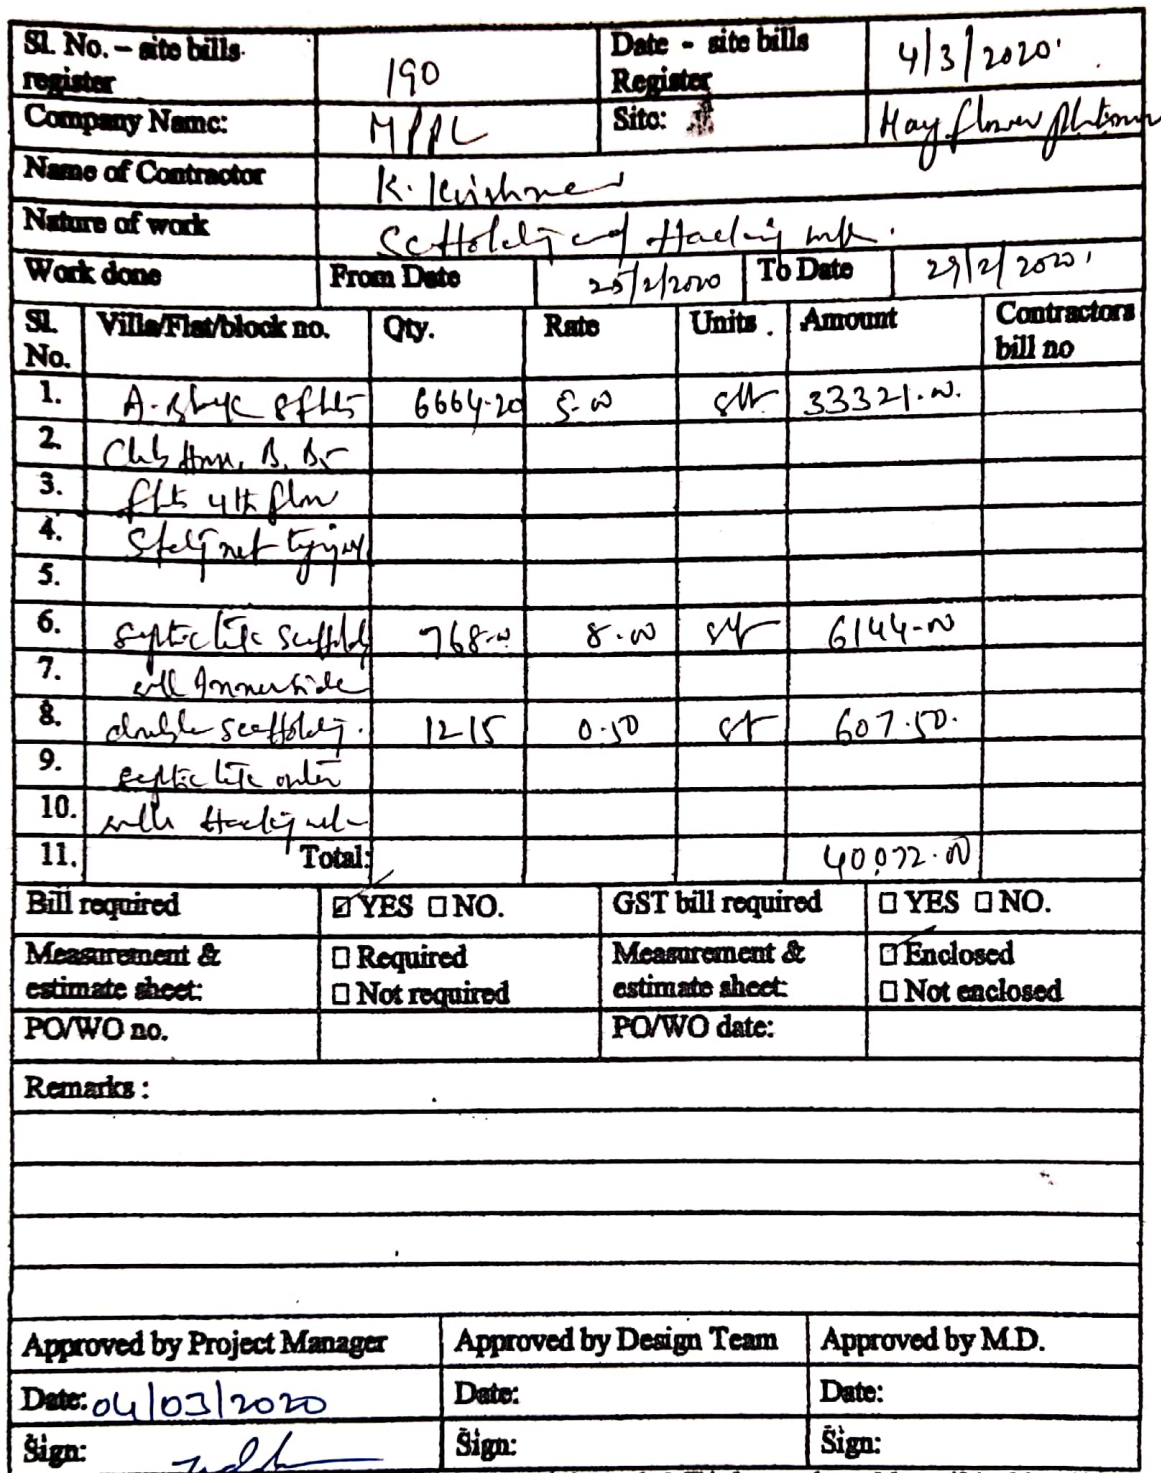 Sl. No. – site bills register 190 Date - site bills Register 4/3/2020
Company Name: MPPL Site: May flower platinum
Name of Contractor K. Krishna
Nature of work Scaffolding and Hacking work.
Work done From Date 25/2/2020 To Date 29/2/2020
Sl. No. Villa/Flat/block no. Qty. Rate Units Amount Contractors bill no
1. A. Block 6664-20 5-00 sft 33321.00
2. Club House, B, B5
3. flts 4th floor
4. net tying
5.
6. septic scaffolding 768-00 8-00 sft 6144-00
7. wall Innerside
8. double scaffolding. 1215 0.50 sft 607.50
9. septic outer
10. walls Hacking
11. Total: 40,072.00
Bill required ☑ YES ☐ NO. GST bill required ☐ YES ☐ NO.
Measurement & estimate sheet: ☐ Required ☐ Not required Measurement & estimate sheet: ☑ Enclosed ☐ Not enclosed
PO/WO no. PO/WO date:
Remarks :
Approved by Project Manager Approved by Design Team Approved by M.D.
Date: 04/03/2020 Date: Date:
Sign: Sign: Sign: